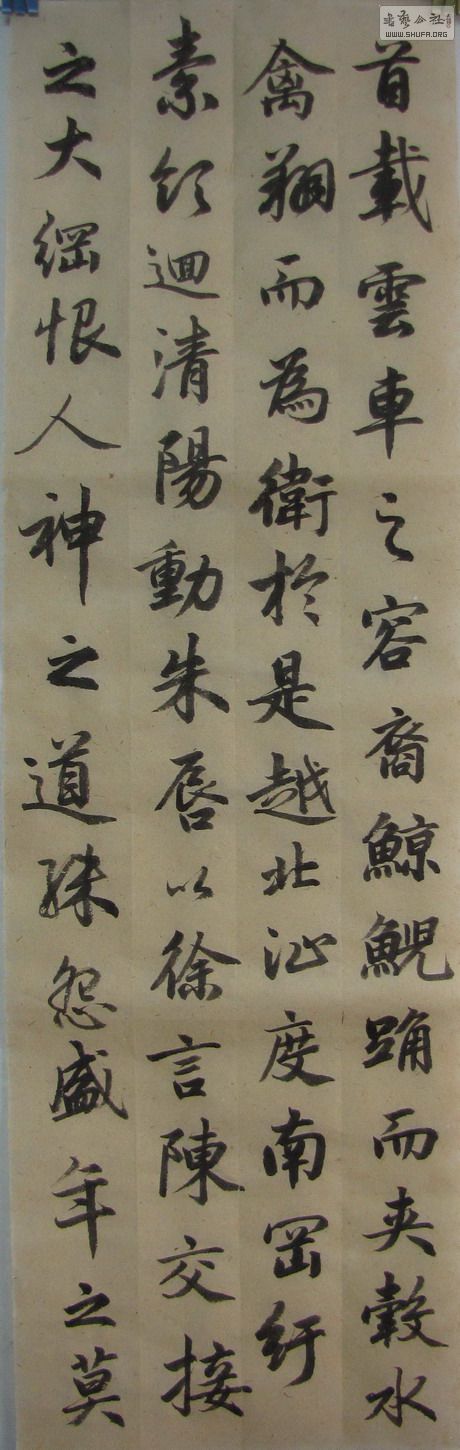 書藝公社
WWW.SHUFA.ORG
首載雲車之容裔鯨鯢踴而夾轂水
禽翔而為衛於是越北沚度南岡紆
素領迴清陽動朱唇以徐言陳交接
之大綱恨人神之道殊怨盛年之莫